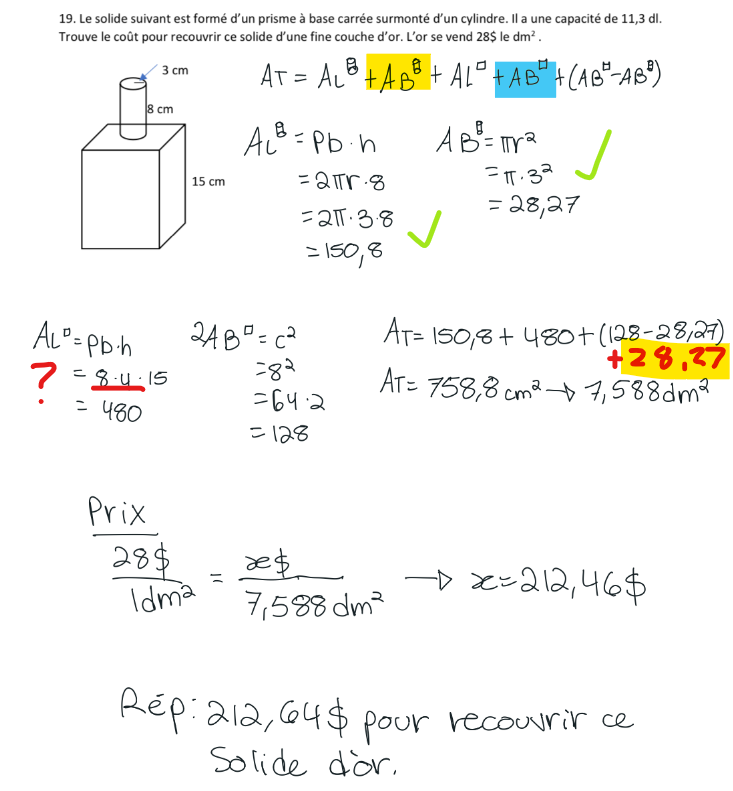 19. Le solide suivant est formé d'un prisme à base carrée surmonté d'un cylindre. Il a une capacité de 11,3 dl.
Trouve le coût pour recouvrir ce solide d'une fine couche d'or. L'or se vend 28$ le dm².
3 cm
8 cm
15 cm
AT = AL + AB + AL + AB + (AB - AB)
AL = Pb · h
= 2πr · 8
= 2π · 3 · 8
= 150,8
AB = πr²
= π · 3²
= 28,27
AL = Pb · h
? = 8 · 4 · 15
= 480
2AB = c²
= 8²
= 64 · 2
= 128
AT = 150,8 + 480 + (128 - 28,27)
+ 28,27
AT = 758,8 cm² → 7,588 dm²
Prix
28$ / 1dm² = x$ / 7,588 dm² → x = 212,46$
Rép: 212,64$ pour recouvrir ce
Solide d'or.